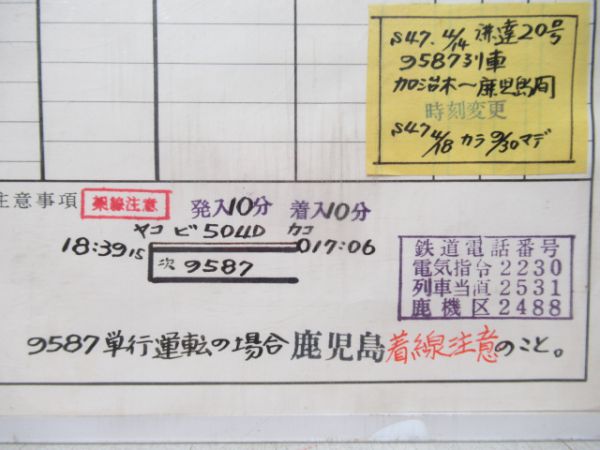 S47. 4/14 津達20号
9587列車
加治木〜鹿児島間
時刻変更
S47 4/18 カラ 9/30マデ
注意事項 架線注意 発入10分 着入10分
ヤコ ビ504D カコ
18:39 15 017:06
次 9587
鉄道電話番号
電気指令2230
列車当直2531
鹿機区2488
9587単行運転の場合鹿児島着線注意のこと。